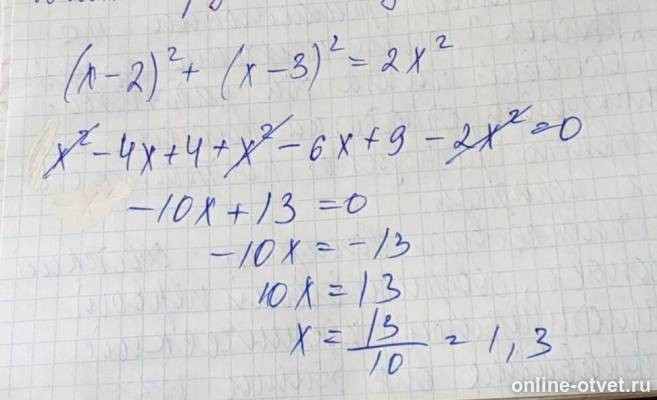 (x-2)²+ (x-3)²=2x²
x²-4x+4+x²-6x+9-2x²=0
-10x+13=0
-10x=-13
10x=13
x=13/10=1,3
online-otvet.ru